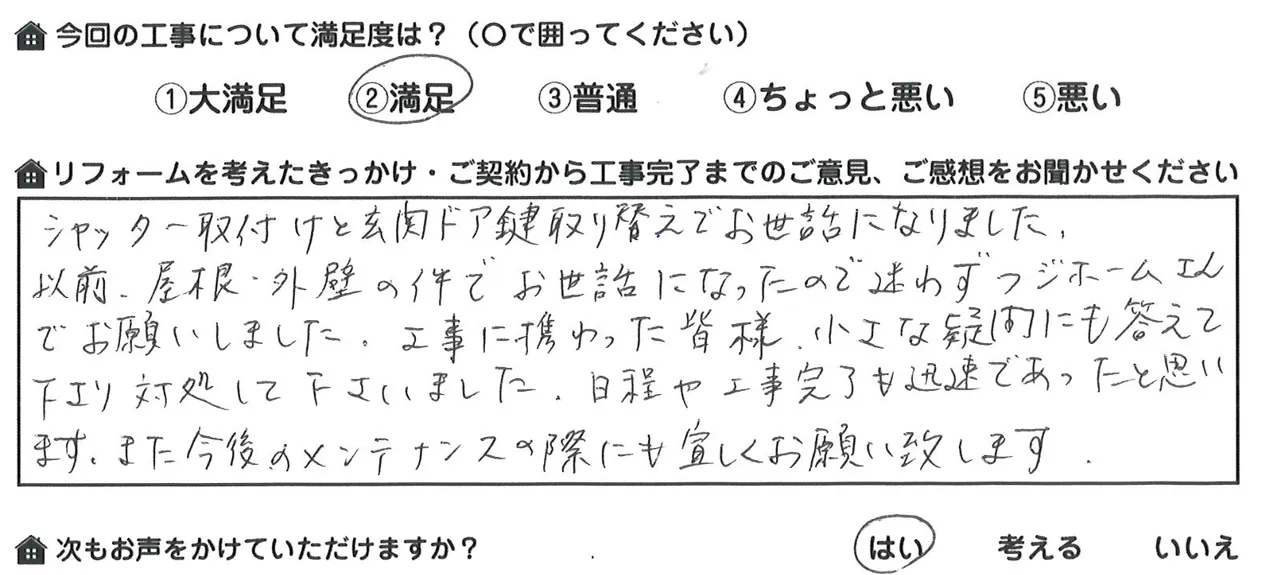 今回の工事について満足度は？（〇で囲ってください）
①大満足 ②満足 ③普通 ④ちょっと悪い ⑤悪い
リフォームを考えたきっかけ・ご契約から工事完了までのご意見、ご感想をお聞かせください
シャッター取付けと玄関ドア鍵取り替えでお世話になりました。
以前、屋根・外壁の件でお世話になったので迷わずフジホームさん
でお願いしました。工事に携わった皆様、小さな疑問にも答えて
下さり対処して下さいました。日程や工事完了も迅速であったと思い
ます。また今後のメンテナンスの際にも宜しくお願い致します.
次もお声をかけていただけますか？ はい 考える いいえ